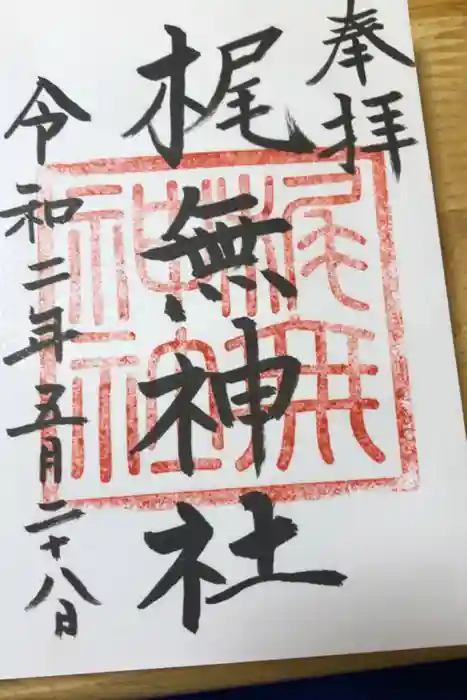 奉拝
梶無神社
令和二年五月二十八日
梶無
神社